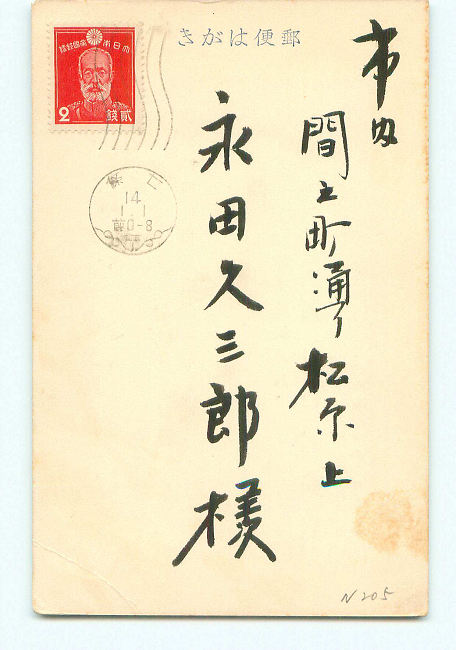 きがは便郵
市内
間之町通り松原上
永田久三郎様
便郵國帝本日大
2
銭貳
14
1.1
前0-8
N 205